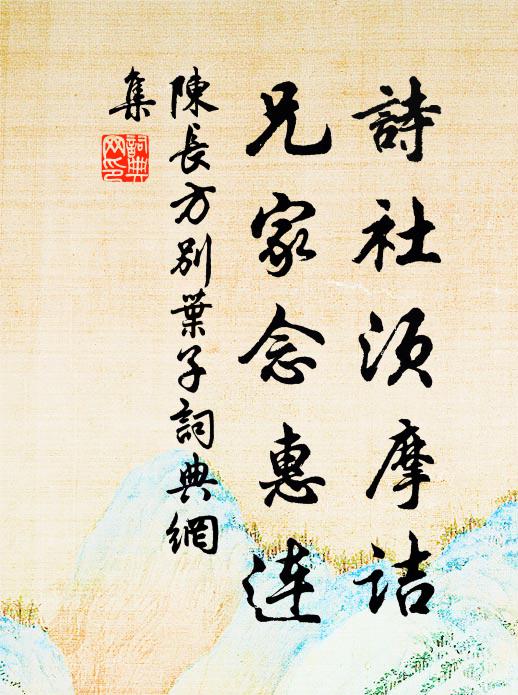 詩社須摩詰
兄家念惠连
陳長方别葉子詞典網
集
詞典
网印